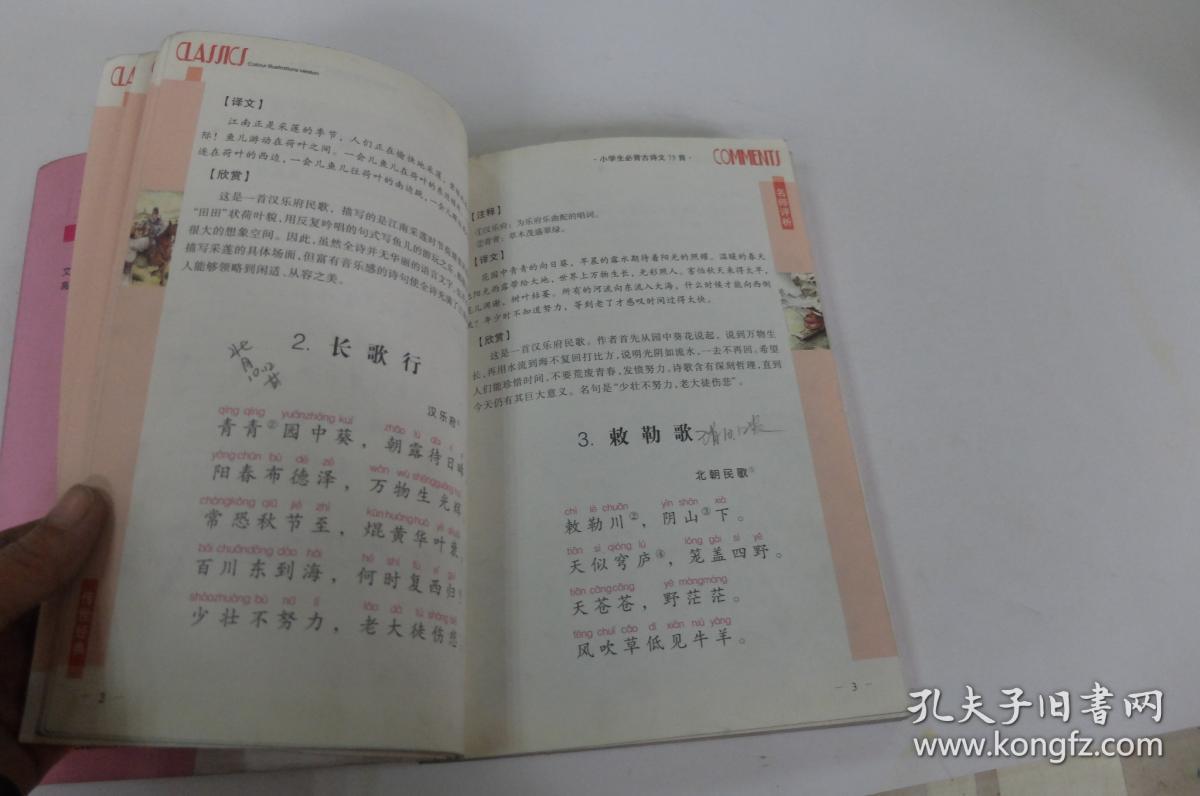 CLASSICS
Colour illustrations version
【译文】
江南正是采莲的季节，人们正在愉快地采莲，
际！鱼儿游动在荷叶之间。一会儿鱼儿在荷叶的东
逐在荷叶的西边，一会儿鱼儿往荷叶的南边跳，一会儿
【欣赏】
这是一首汉乐府民歌，描写的是江南采莲时节
“田田”状荷叶貌，用反复吟唱的句式写鱼儿的游玩之乐，
很大的想象空间。因此，虽然全诗并无华丽的语言文字，
描写采莲的具体场面，但富有音乐感的诗句使全诗充满了
人能够领略到闲适、从容之美。
2. 长歌行
背
汉乐府①
qīng qīng yuánzhōng kuí zhāo lù dài
青青②园中葵，朝露待日晞
yáng chūn bù dé zé wàn wù shēng guāng huī
阳春布德泽，万物生光辉
cháng kǒng qiū jié zhì kūn huáng huā yè shuāi
常恐秋节至，焜黄华叶衰
bǎi chuān dōng dào hǎi hé shí fù xī guī
百川东到海，何时复西归
shào zhuàng bù nǔ lì lǎo dà tú shāng bēi
少壮不努力，老大徒伤悲
传统经典
－2－
·小学生必背古诗文75首·
COMMENTS
名师评析
【注释】
①汉乐府：为乐府乐曲配的唱词。
②青青：草木茂盛翠绿。
【译文】
花园中青青的向日葵，早晨的露水期待着阳光的照耀。温暖的春天
把阳光雨露带给大地，世界上万物生长，光彩照人。害怕秋天来得太早，
花儿凋谢，树叶枯萎。所有的河流向东流入大海，什么时候才能向西倒
流？年少时不知道努力，等到老了才感叹时间过得太快。
【欣赏】
这是一首汉乐府民歌。作者首先从园中葵花说起，说到万物生
长，再用水流到海不复回打比方，说明光阴如流水，一去不再回。希望
人们能珍惜时间，不要荒废青春，发愤努力。诗歌含有深刻哲理，直到
今天仍有其巨大意义。名句是“少壮不努力，老大徒伤悲”。
3. 敕勒歌
北朝民歌①
chì lè chuān yīn shān xià
敕勒川②，阴山③下。
tiān sì qióng lú lǒng gài sì yě
天似穹庐④，笼盖四野。
tiān cāng cāng yě máng máng
天苍苍，野茫茫。
fēng chuī cǎo dī xiàn niú yáng
风吹草低见牛羊。
－3－
孔夫子旧书网
www.kongfz.com